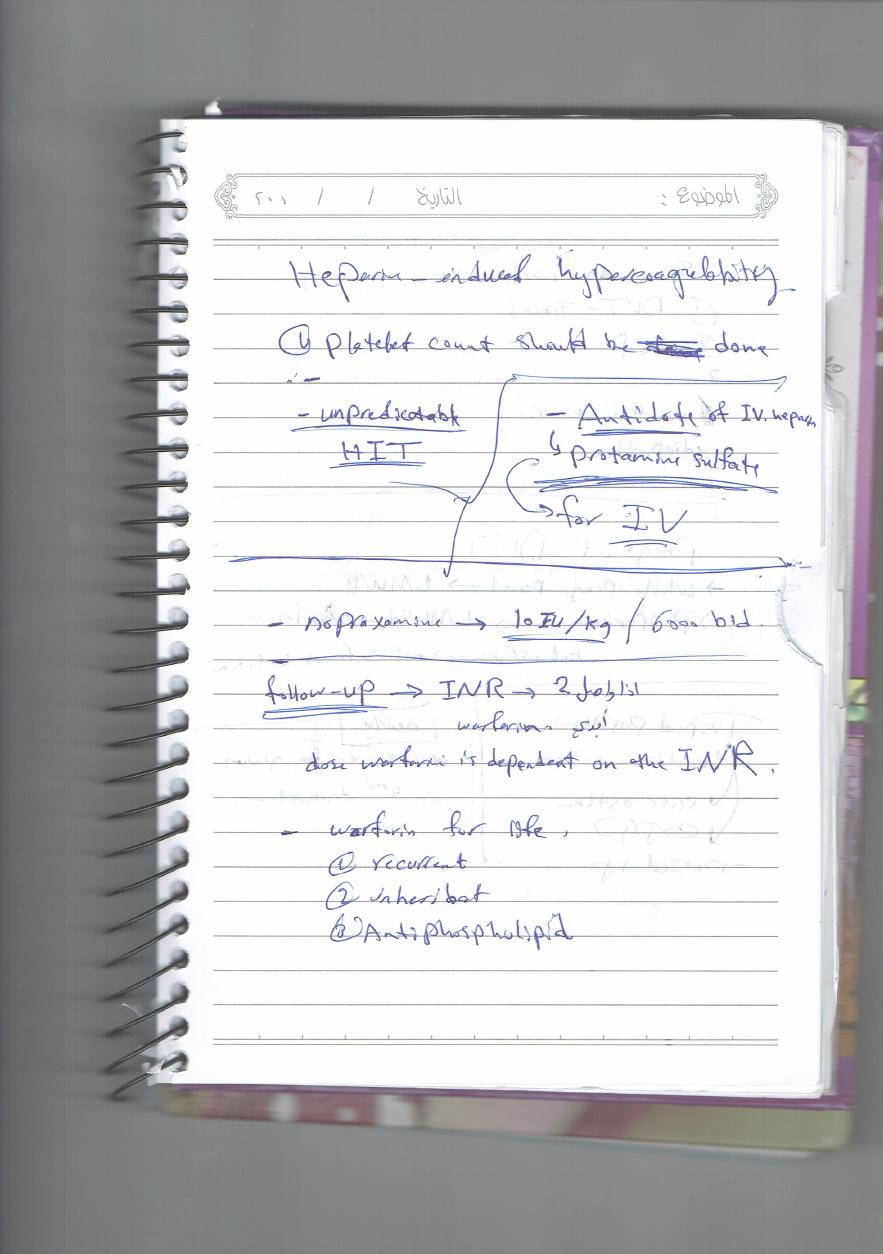 الموضوع : التاريخ / / ٢٠٠
Heparin - induced hypercoagulability
① platelet count should be done
:-
- unpredicatable
HIT
- Antidote of IV. heparin
↳ protamine sulfate
→ for IV
- → 10 IU/kg / 6000 bid.
follow-up → INR → 2
warfarin. أبدي
dose warfarin is dependent on the INR.
- warfarin for life,
① recurrent
②
③ Antiphospholipid